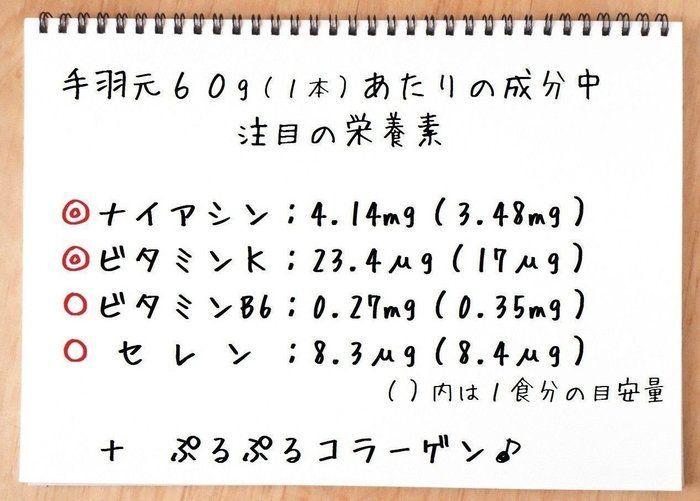 手羽元60g(1本)あたりの成分中
注目の栄養素
◎ナイアシン:4.14mg(3.48mg)
◎ビタミンK:23.4μg(17μg)
○ビタミンB6:0.27mg(0.35mg)
○セレン:8.3μg(8.4μg)
()内は1食分の目安量
+ ぷるぷるコラーゲン♪